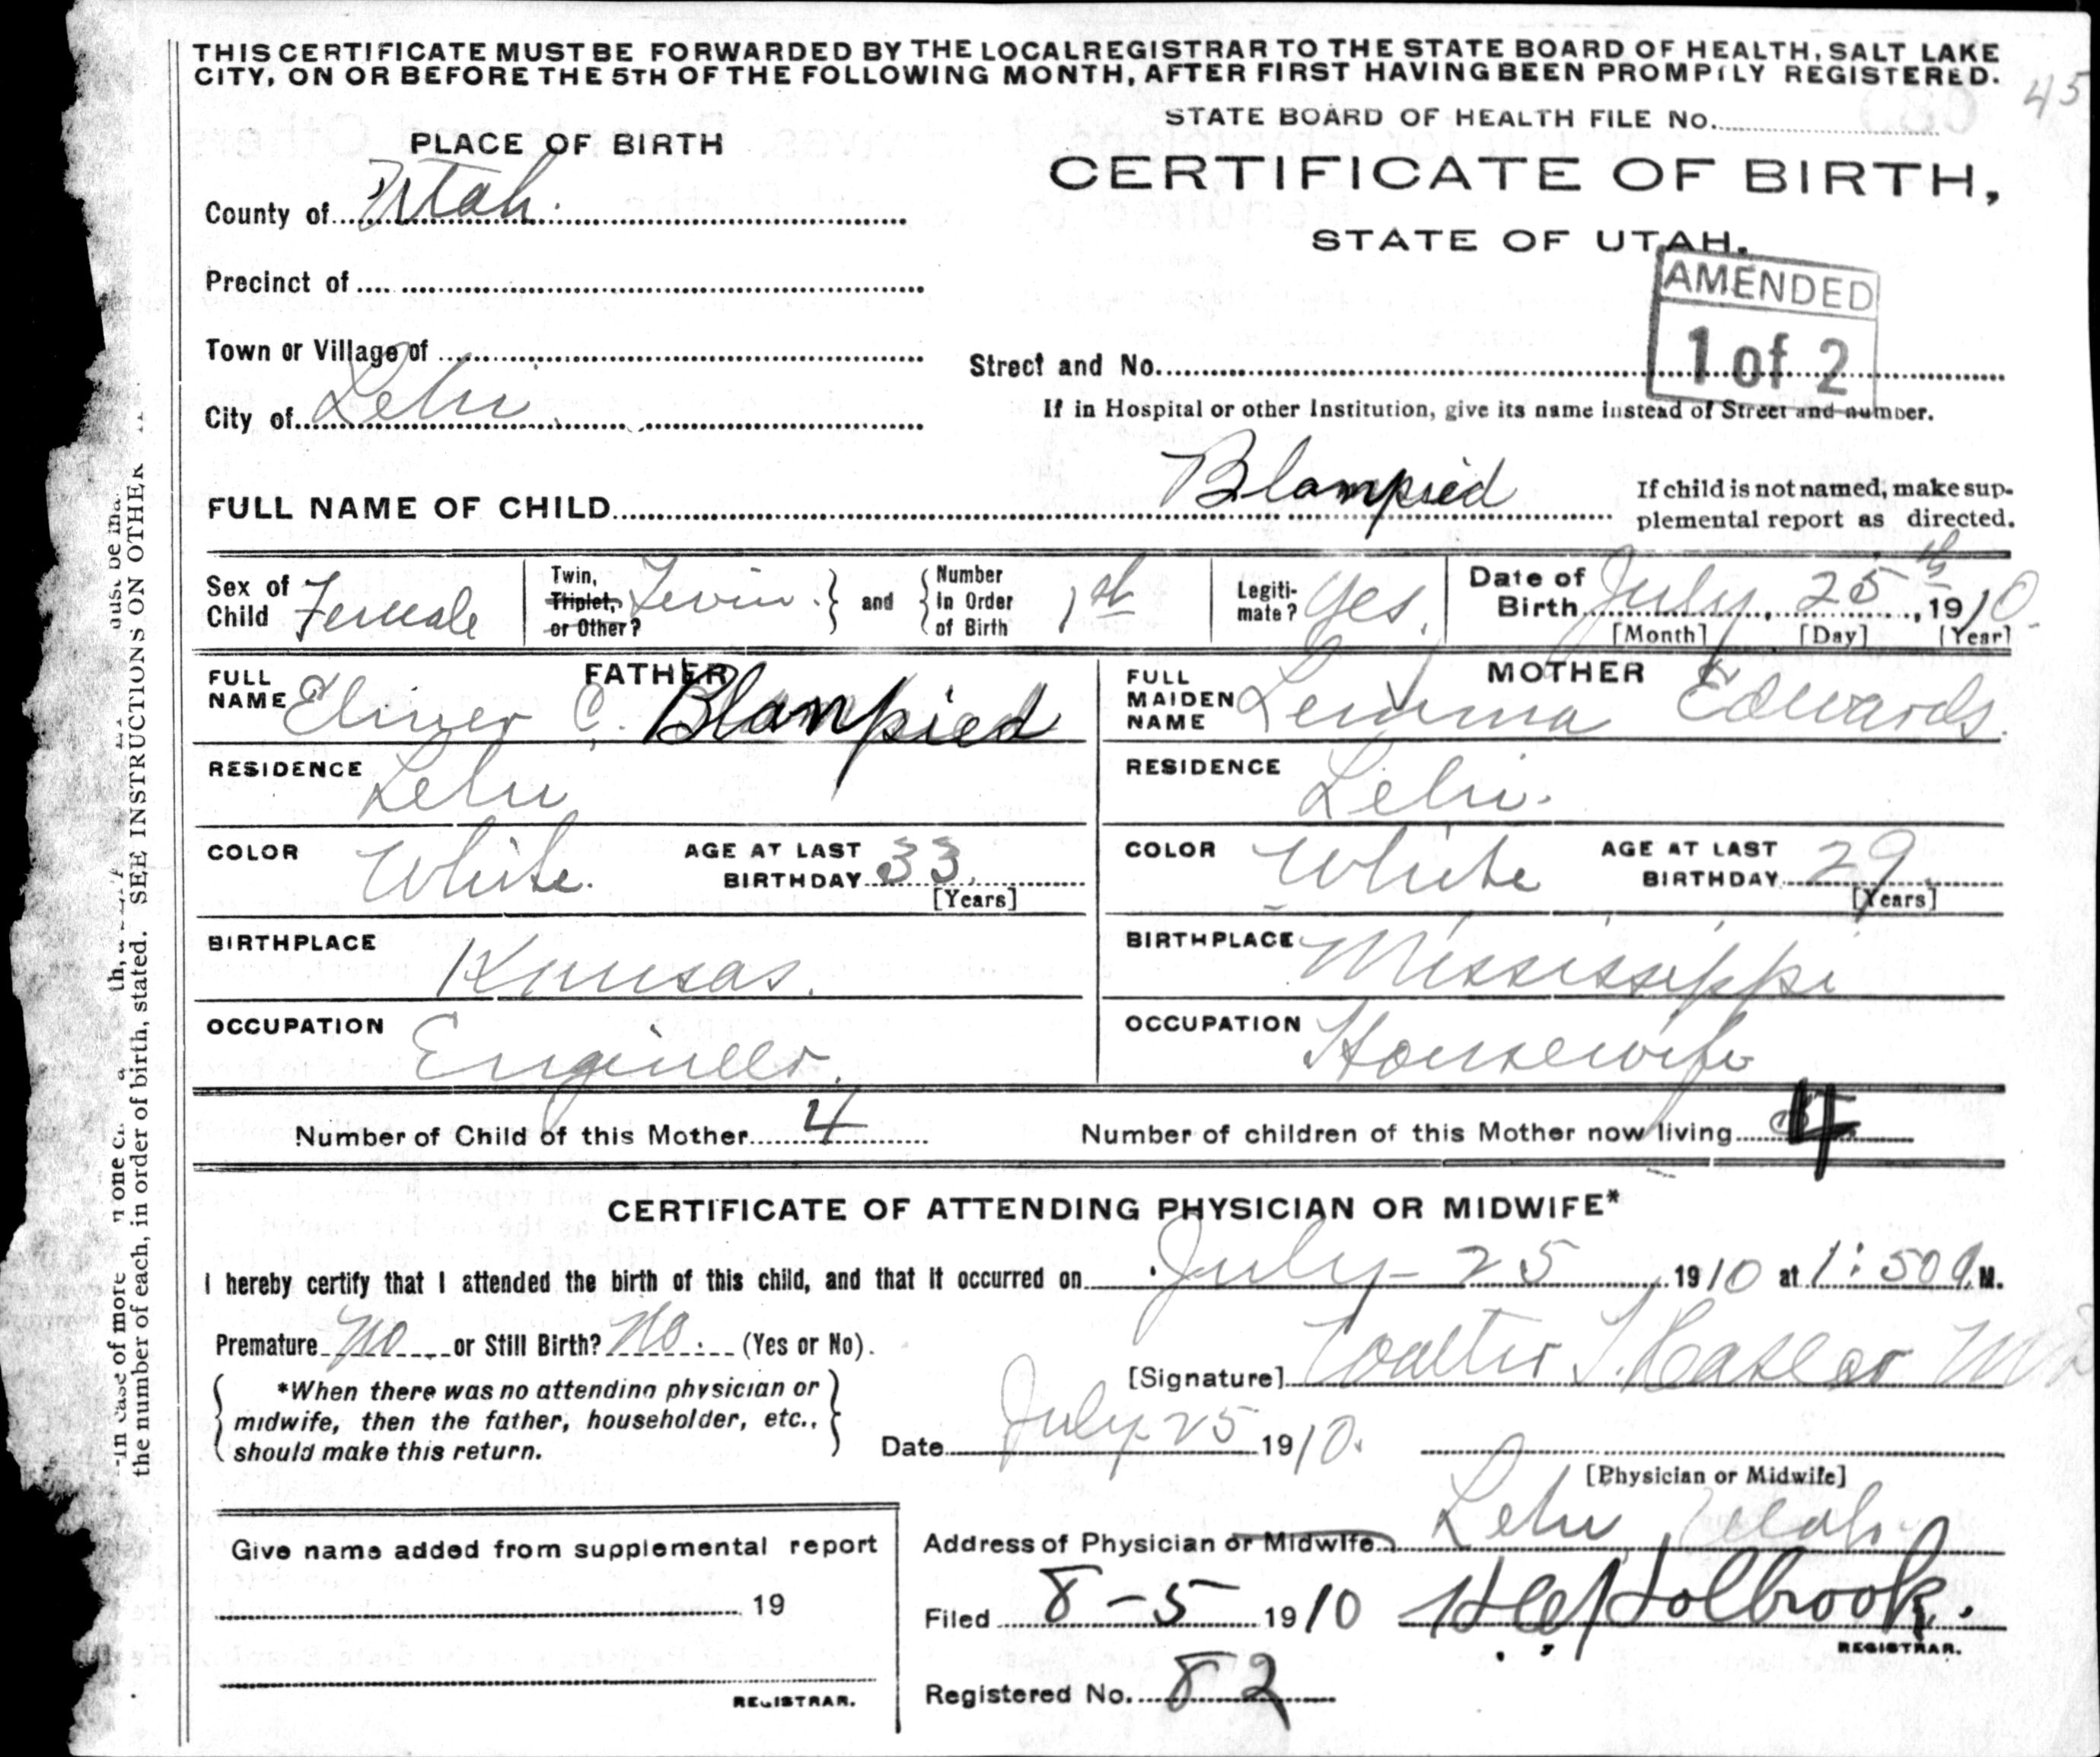 THIS CERTIFICATE MUST BE FORWARDED BY THE LOCAL REGISTRAR TO THE STATE BOARD OF HEALTH, SALT LAKE
CITY, ON OR BEFORE THE 5TH OF THE FOLLOWING MONTH, AFTER FIRST HAVING BEEN PROMPTLY REGISTERED.
45
STATE BOARD OF HEALTH FILE No.
PLACE OF BIRTH
CERTIFICATE OF BIRTH,
County of Utah.
STATE OF UTAH.
AMENDED
1 of 2
Precinct of
Town or Village of
Street and No.
City of Lehi
If in Hospital or other Institution, give its name instead of Street and number.
FULL NAME OF CHILD Blampied
If child is not named, make sup-
plemental report as directed.
Sex of Child Female
Twin, Triplet, or Other? Twin. and Number in Order of Birth 1st
Legiti-mate? Yes.
Date of Birth July, 25th, 1910.
[Month] [Day] [Year]
FATHER
FULL NAME Elmer C. Blampied
MOTHER
FULL MAIDEN NAME Lemma Edwards.
RESIDENCE Lehi
RESIDENCE Lehi.
COLOR White. AGE AT LAST BIRTHDAY 33. [Years]
COLOR White AGE AT LAST BIRTHDAY 29. [Years]
BIRTHPLACE Kansas.
BIRTHPLACE Mississippi
OCCUPATION Engineer.
OCCUPATION Housewife
Number of Child of this Mother 4
Number of children of this Mother now living 4
CERTIFICATE OF ATTENDING PHYSICIAN OR MIDWIFE*
I hereby certify that I attended the birth of this child, and that it occurred on July 25 1910 at 1:50 a M.
Premature No or Still Birth? No. (Yes or No).
[Signature] Walter T. Hasler M D
*When there was no attending physician or
midwife, then the father, householder, etc.,
should make this return.
Date July 25 1910.
[Physician or Midwife]
Address of Physician or Midwife Lehi, Utah.
Give name added from supplemental report
19
REGISTRAR.
Filed 8-5 1910 Holbrook.
REGISTRAR.
Registered No. 82
In case of more one
the number of each, in order of birth, stated. SEE INSTRUCTIONS ON OTHER